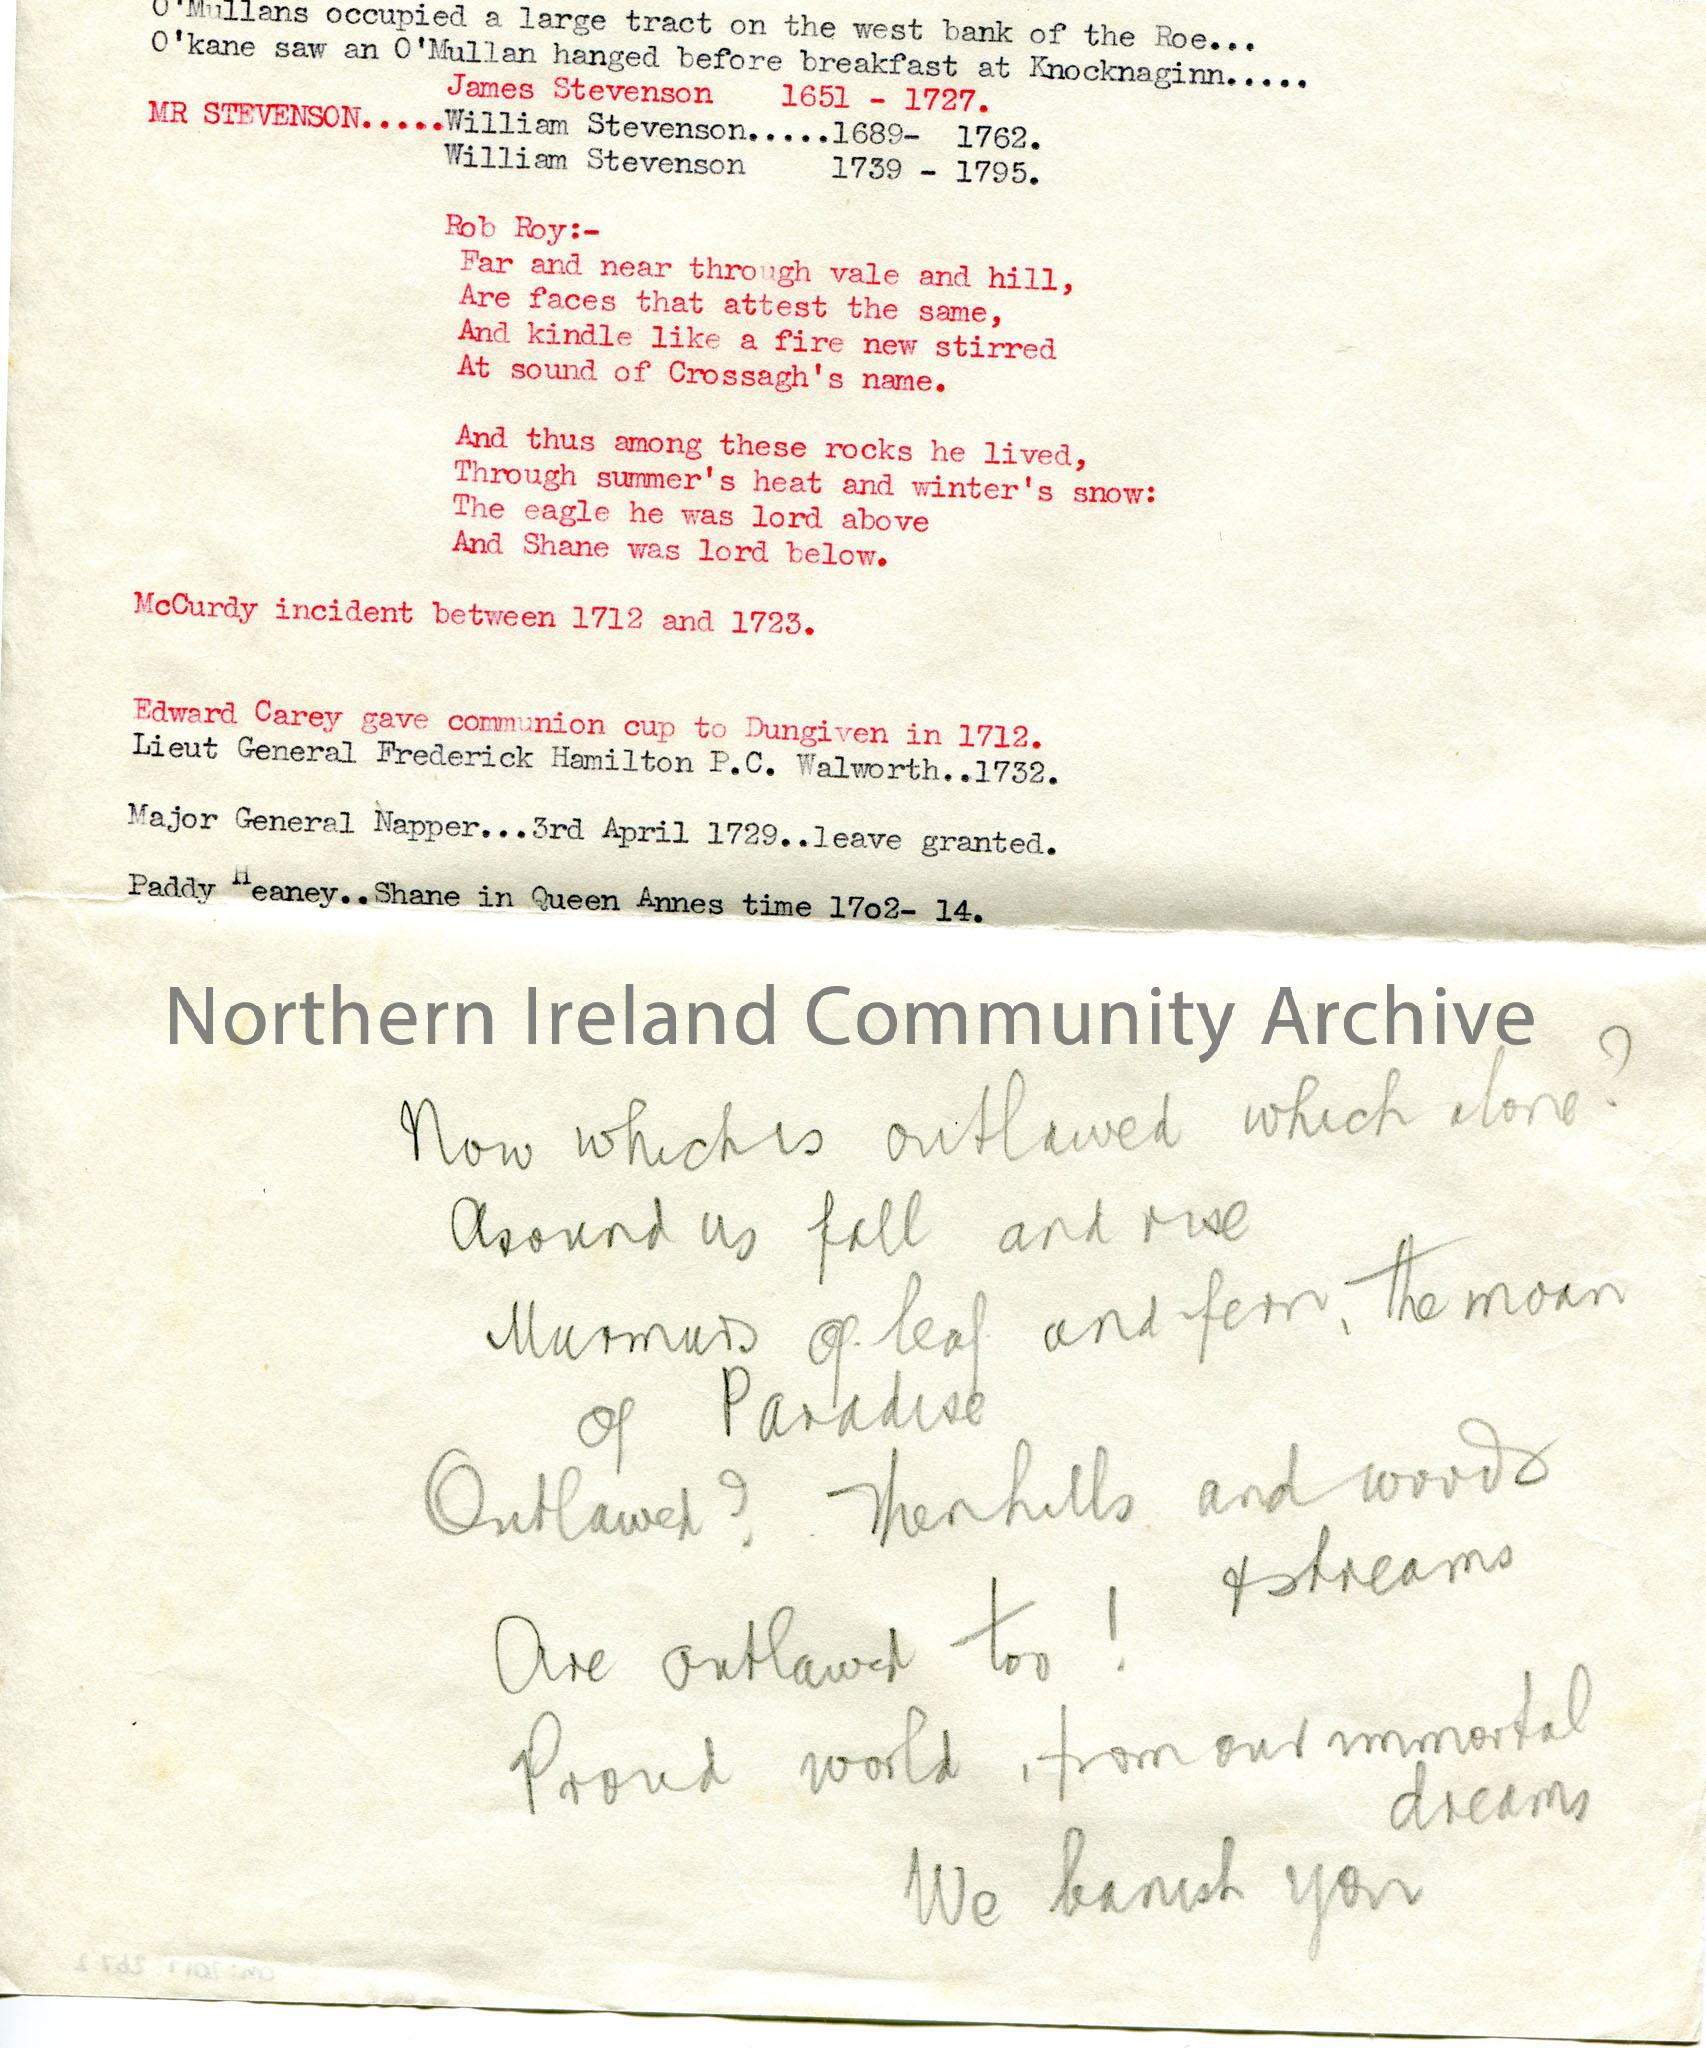 O'Mullans occupied a large tract on the west bank of the Roe...
O'kane saw an O'Mullan hanged before breakfast at Knocknaginn.....
James Stevenson 1651 - 1727.
MR STEVENSON.....William Stevenson.....1689- 1762.
William Stevenson 1739 - 1795.
Rob Roy:-
Far and near through vale and hill,
Are faces that attest the same,
And kindle like a fire new stirred
At sound of Crossagh's name.
And thus among these rocks he lived,
Through summer's heat and winter's snow:
The eagle he was lord above
And Shane was lord below.
McCurdy incident between 1712 and 1723.
Edward Carey gave communion cup to Dungiven in 1712.
Lieut General Frederick Hamilton P.C. Walworth..1732.
Major General Napper...3rd April 1729..leave granted.
Paddy Heaney..Shane in Queen Annes time 17o2- 14.
Northern Ireland Community Archive
Now which is outlawed which alone?
Around us fall and rise
Murmurs of leaf and fern, the moan
of Paradise
Outlawed? Then hills and woods
& streams
Are outlawed too!
Proud world, from our immortal
dreams
We banish you